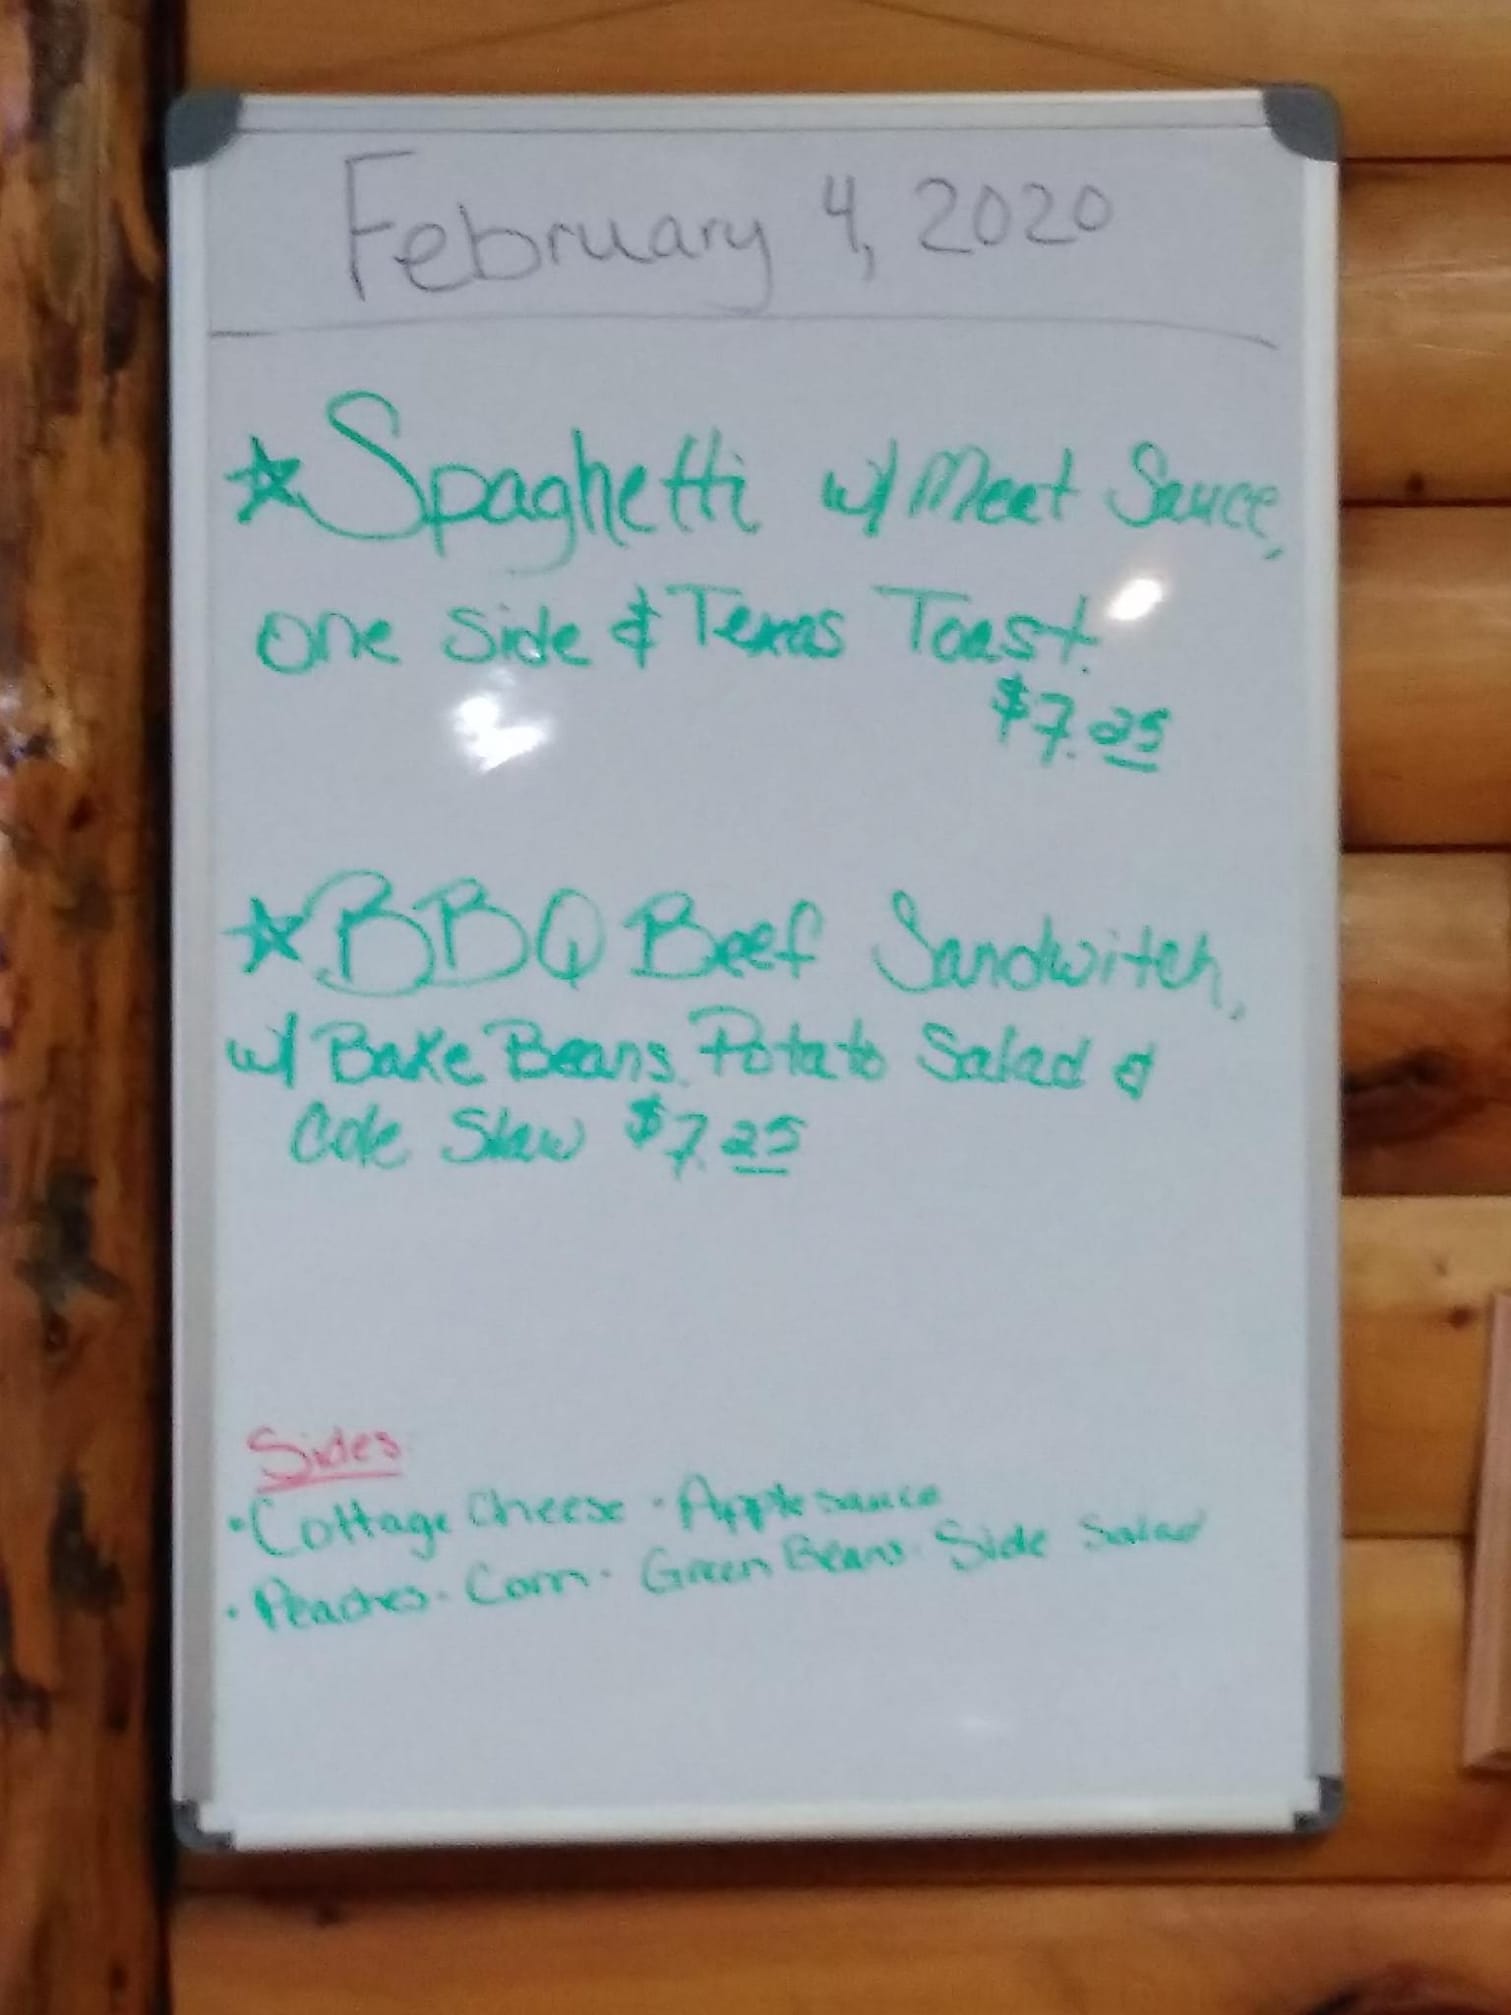 February 4, 2020
☆Spaghetti w/ Meat Sauce,
one Side & Texas Toast.
$7.25
☆BBQ Beef Sandwitch,
w/ Bake Beans, Potato Salad &
Cole Slaw $7.25
Sides
•Cottage Cheese • Applesauce
• Peaches • Corn • Green Beans • Side Salad